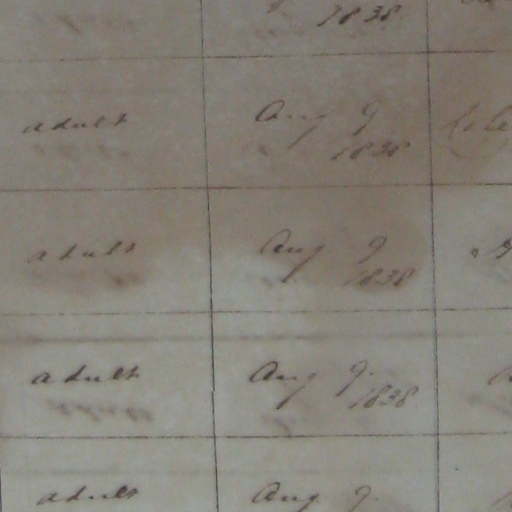 1838.
adult Aug 9
1838
adult Aug 9
1838
adult Aug 9.
1838.
adult Aug 9.